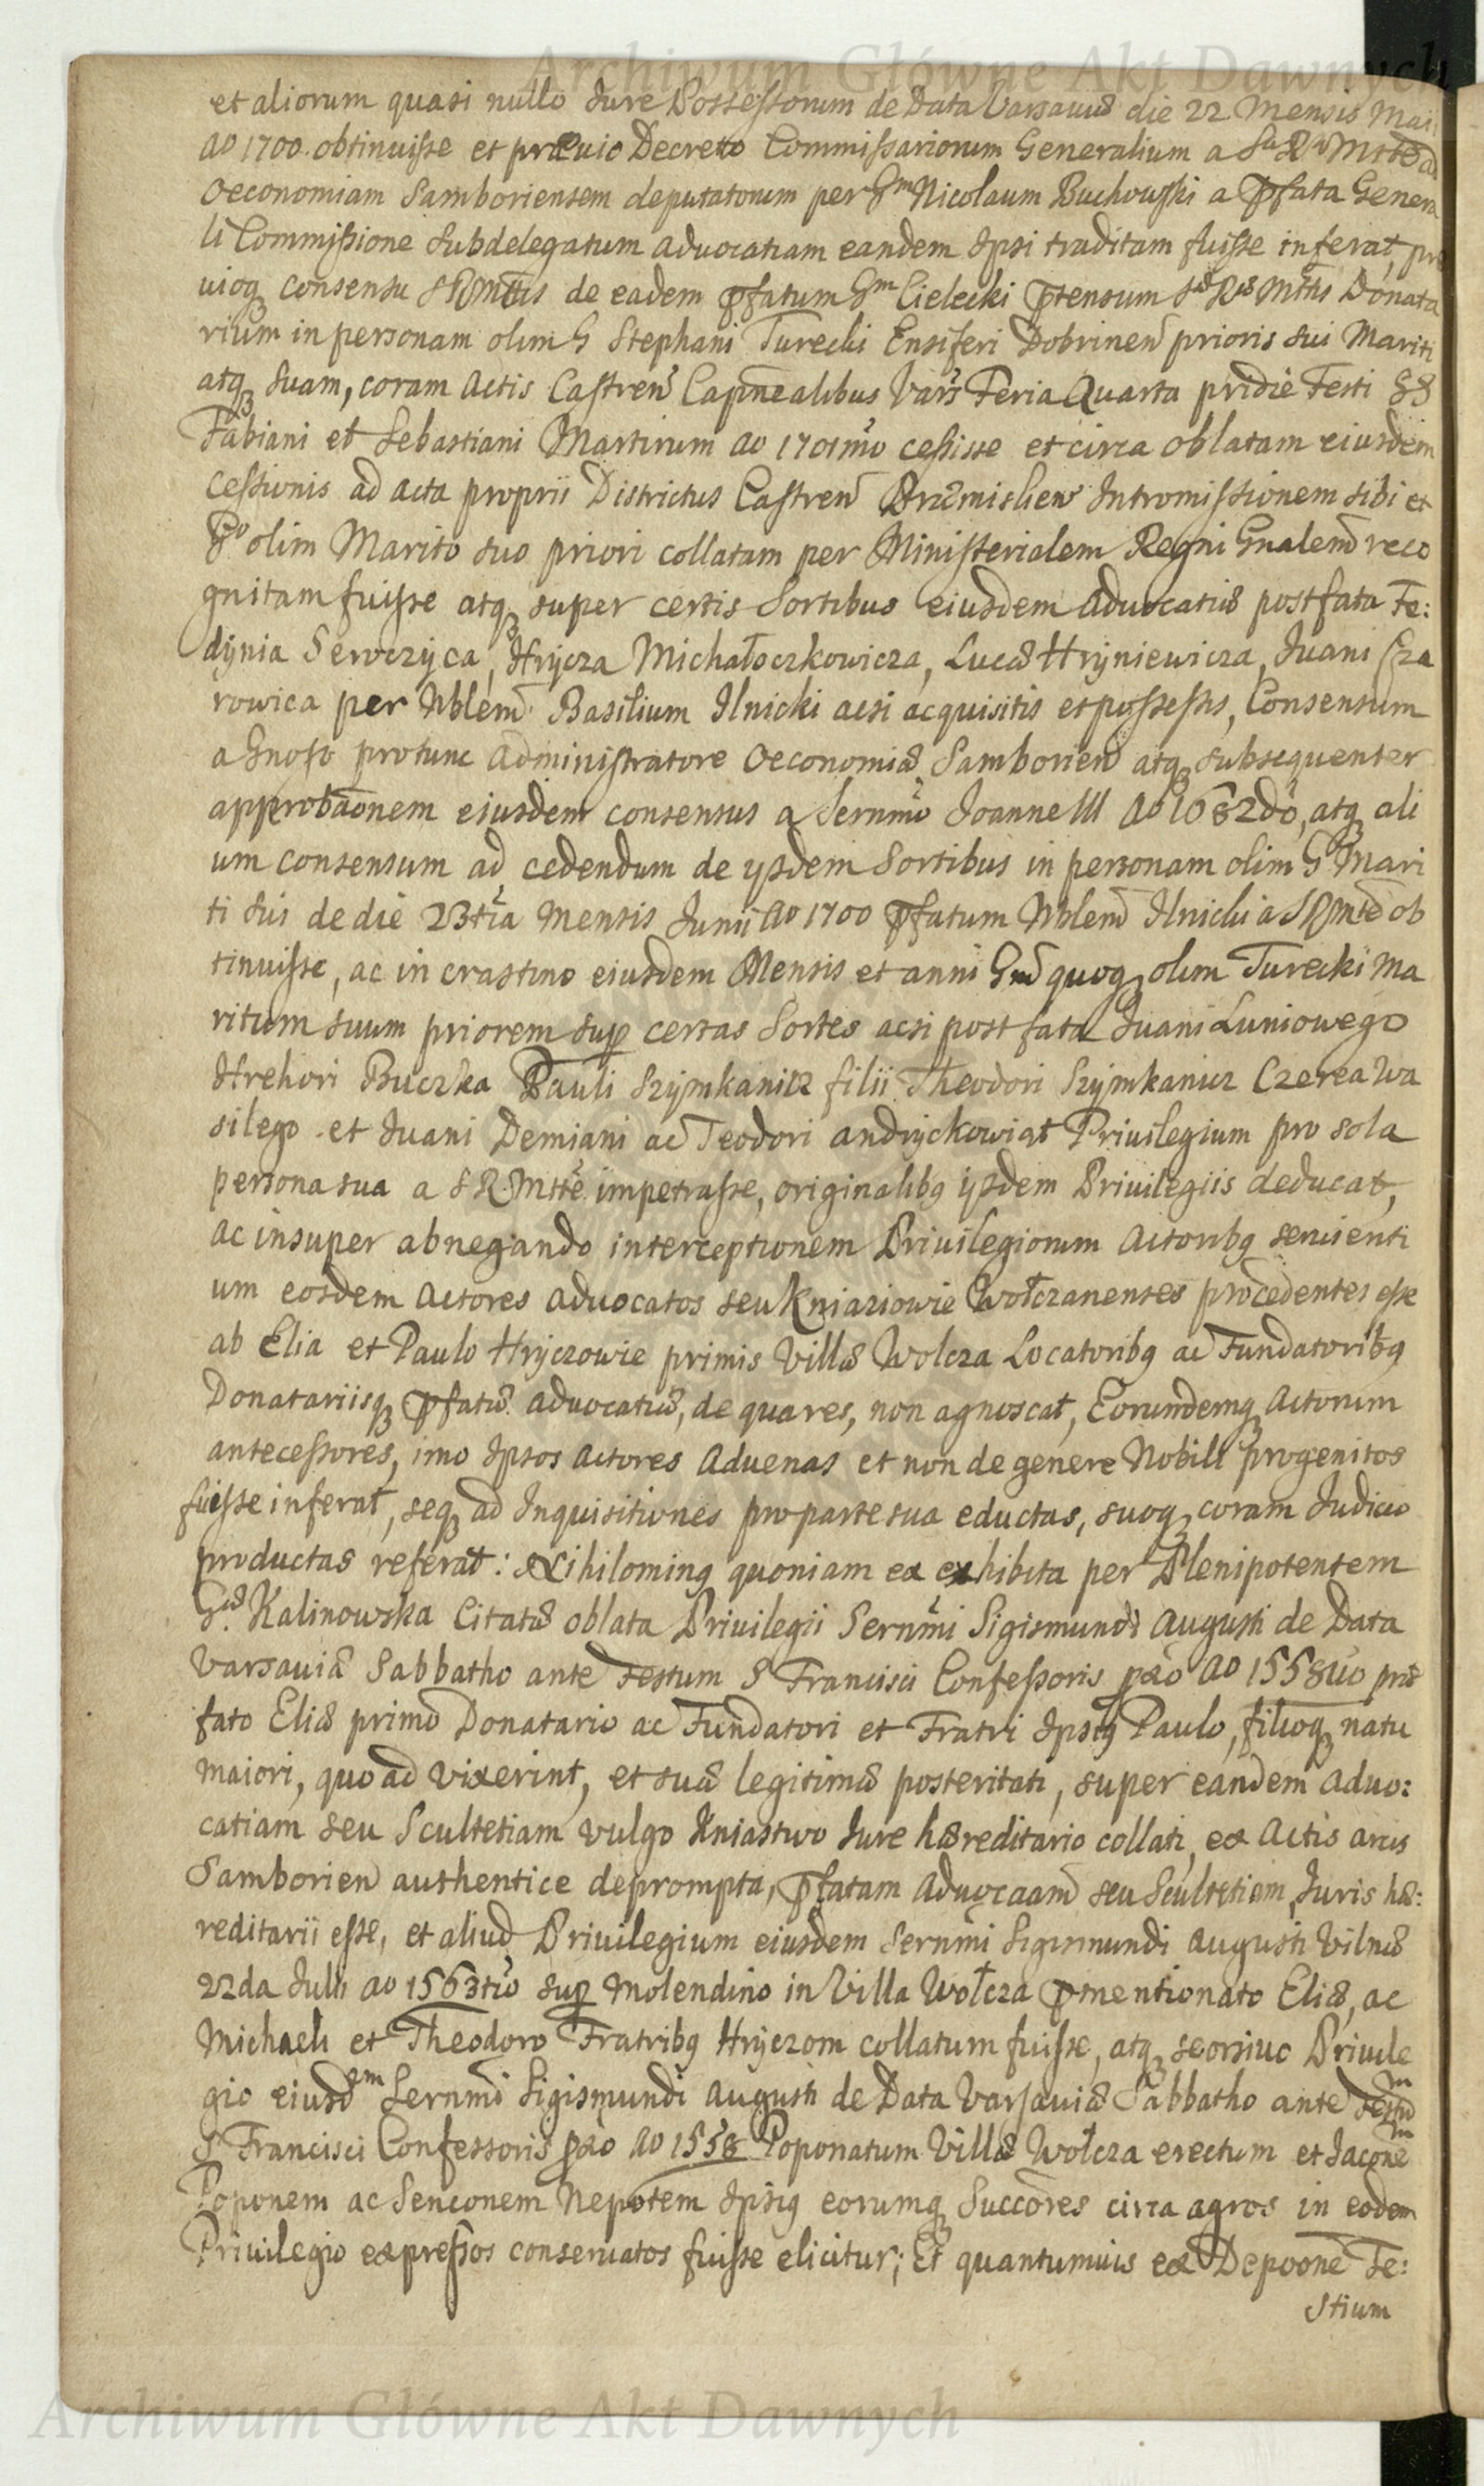 Archiwum Główne Akt Dawnych
et aliorum quasi nullo Jure Possessorum de Data Varsaviæ die 22 Mensis Maii
Ao 1700. obtinuisse et prævio Decreto Commissariorum Generalium a Sa Ra Mtte ad
Oeconomiam Samboriensem deputatorum per Gm Nicolaum Buchowski a pfata Genera
li Commissione Subdelegatum Advocatiam eandem Ipsi traditam fuisse inferat, præ
vioq consensu S R Mttis de eadem pfatum Gm Cielecki ptensum Sæ Ræ Mttis Donata
rium in personam olim G Stephani Turecki Ensiferi Dobrinen prioris sui Mariti
atq suam, coram Actis Castren Capnealibus Vars Feria Quarta pridie Festi SS
Fabiani et Sebastiani Martirum Ao 1701mo cessisse et circa oblatam eiusdem
cessionis ad acta proprii Districtus Castren Præmislien Intromissionem sibi et
Go olim Marito suo priori collatam per Ministerialem Regni Gnalem reco
gnitam fuisse atq super certis Sortibus eiusdem Advocatiæ post fata Fe:
dynia Serwczyca, Hrycza Michałoczkowicza, Lucæ Hryniewicza, Iuani Cza
rowica per Nblem Basilium Ilnicki acsi acquisitis et possessis, Consensum
a Gnoso protunc Administratore Oeconomiæ Samborien atq subsequenter
approbaonem eiusdem consensus a Sernmo Joanne III Ao 1682do, atq ali
um consensum ad cedendum de ysdem Sortibus in personam olim G Mari
ti sui de die 23tia Mensis Junii Ao 1700 pfatum Nblem Ilnicki a S R Mtte ob
tinuisse, ac in crastino eiusdem Mensis et anni Gm quoq olim Turecki Ma
ritum suum priorem sup certas Sortes acsi post fata Iuani Luniowego
Hrehori Buczka Pauli Szymkanicz filii Theodori Szymkanicz Czerea Wa
silego et Iuani Demiani ac Teodori Andryckowiat Privilegium pro sola
persona sua a S R Mtte impetrasse, originalibq ysdem Privilegiis deducat,
ac insuper abnegando interceptionem Privilegiorum Actoribq servienti
um eosdem Actores Advocatos seu Kniaziowie Wołczanenses procedentes esse
ab Elia et Paulo Hryczowie primis Villæ Wolcza Locatoribq ac Fundatoribq
Donatariisq pfatæ Advocatiæ, de qua res, non agnoscat, Eorundemq Actorum
antecessores, imo Ipsos Actores Advenas et non de genere Nobili progenitos
fuisse inferat, seq ad Inquisitiones pro parte sua eductas, suoq coram Judicio
productas referat: Nihilominq quoniam ex exhibita per Plenipotentem
Gæ Kalinowska Citatæ oblata Privilegii Sernmi Sigismundi Augusti de Data
Varsaviæ Sabbatho ante Festum S Francisci Confessoris pxo Ao 1558vo præ
fato Eliæ primo Donatario ac Fundatori et Fratri Ipsiq Paulo, filioq natu
maiori, quo ad vixerint, et suæ legitimæ posteritati, super eandem Advo:
catiam seu Scultetiam vulgo Kniastwo Jure hæreditario collati, ex Actis arcis
Samborien authentice deprompta, pfatam Advocaam seu Scultetiam, Juris hæ:
reditarii esse, et aliud Privilegium eiusdem Sernmi Sigismundi Augusti Vilnæ
22da Julii Ao 1563tio sup Molendino in Villa Wołcza pmentionato Eliæ, ac
Michaeli et Theodoro Fratribq Hryczom collatum fuisse, atq seorsivo Privile
gio eiusdem Sernmi Sigismundi Augusti de Data Varsaviæ Sabbatho ante Festum
S Francisci Confessoris pxo Ao 1558 Poponatum Villæ Wołcza erectum et Iaconem
Poponem ac Senconem Nepotem Ipsiq eorumq Succores circa agros in eodem
Privilegio expressos conservatos fuisse elicitur; Et quantumvis ex Depoone Te:
stium
Archiwum Główne Akt Dawnych